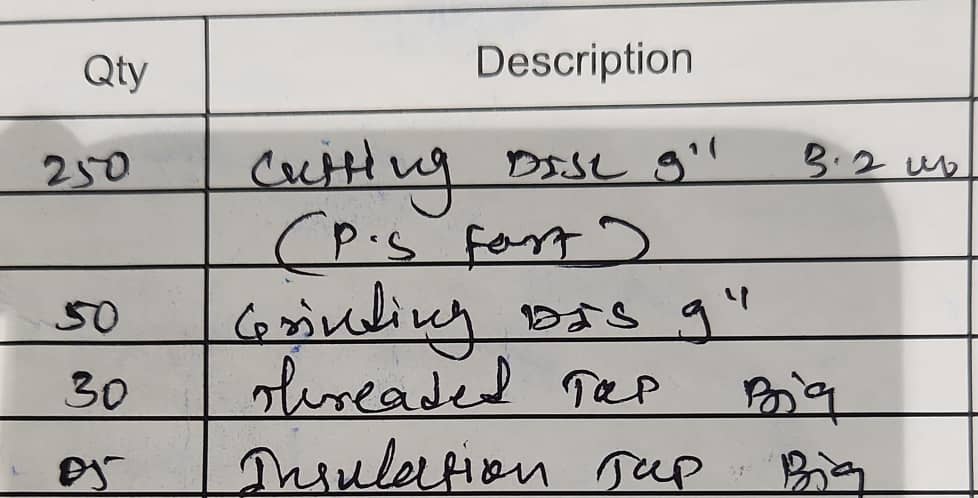 Qty Description
250 Cutting Disc 9" 3.2
(P.S Fast)
50 Grinding Dis 9"
30 Threaded Tap Big
05 Insulation Tap Big